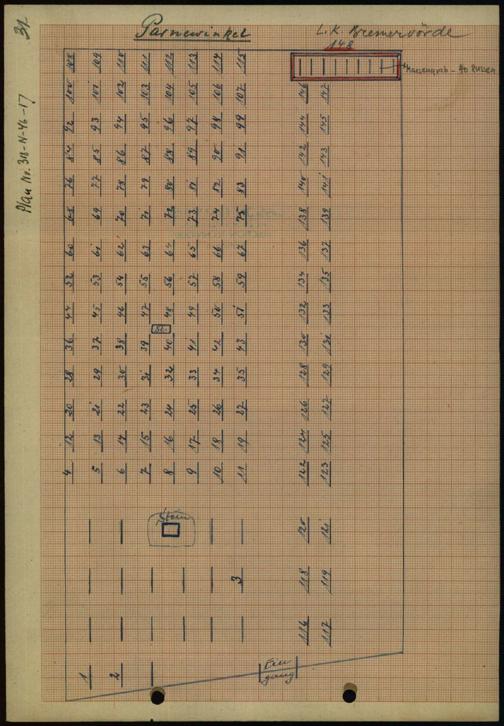 31.
Parnewinkel
L.K. Bremervörde
148
Massengrab - 40 Russen
Plan Nr. 311-N-46-17
108 109 110 111 112 113 114 115
100 101 102 103 104 105 106 107 146 147
92 93 94 95 96 97 98 99 144 145
84 85 86 87 88 89 90 91 142 143
76 77 78 79 80 81 82 83 140 141
68 69 70 71 72 73 74 75 138 139
60 61 62 63 64 65 66 67 136 137
52 53 54 55 56 57 58 59 134 135
44 45 46 47 48 49 50 51 132 133
36 37 38 39 40 41 42 43 130 131
28 29 30 31 32 33 34 35 128 129
20 21 22 23 24 25 26 27 126 127
12 13 14 15 16 17 18 19 124 125
4 5 6 7 8 9 10 11 122 123
Stein 120 121
3 118 119
116 117
1 2
Ein
gang